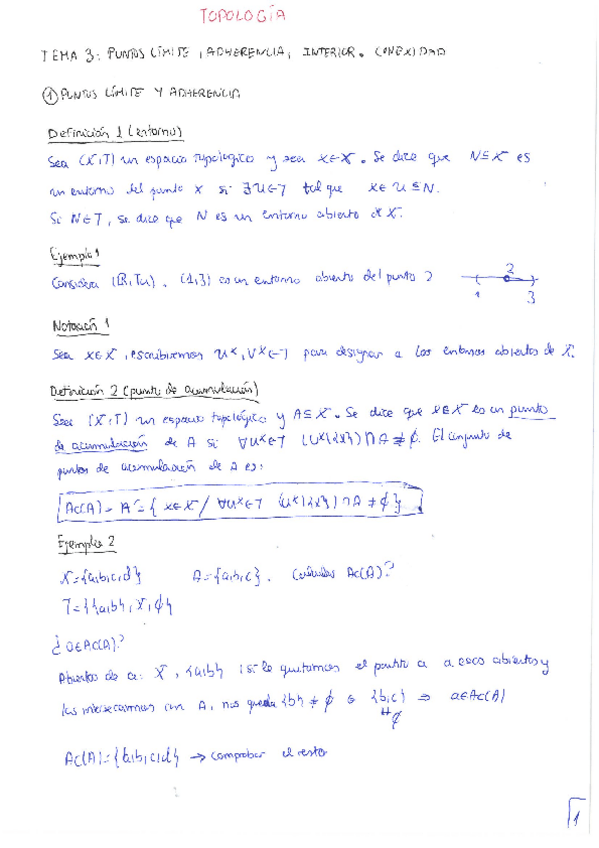 TOPOLOGÍA
TEMA 3: PUNTOS LÍMITE, ADHERENCIA, INTERIOR. CONEXIDAD
① PUNTOS LÍMITE Y ADHERENCIA
Definición 1 (entorno)
Sea (X,T) un espacio topológico y sea x∈X. Se dice que N⊆X es
un entorno del punto x si ∃U∈T tal que x∈U⊆N.
Si N∈T, se dice que N es un entorno abierto de X.
Ejemplo 1
Considera (ℝ,Tu). (1,3) es un entorno abierto del punto 2
2
1
3
Notación 1
Sea x∈X, escribiremos Uˣ,Vˣ∈T para designar a los entornos abiertos de X.
Definición 2 (punto de acumulación)
Sea (X,T) un espacio topológico y A⊆X. Se dice que x∈X es un punto
de acumulación de A si ∀Uˣ∈T (Uˣ\{x})∩A≠∅. El conjunto de
puntos de acumulación de A es:
Ac(A) = A' = { x∈X / ∀Uˣ∈T (Uˣ\{x})∩A ≠ ∅ }
Ejemplo 2
X={a,b,c,d} A={a,b,c}. Calcular Ac(A)?
T={{a,b}, X, ∅}
¿a∈Ac(A)?
Abiertos de a: X, {a,b} (si le quitamos el punto a a esos abiertos y
los intersecamos con A, nos queda {b} ≠ ∅ o {b,c} ⇒ a∈Ac(A)
≠
∅
Ac(A)={a,b,c,d} → comprobar el resto
1